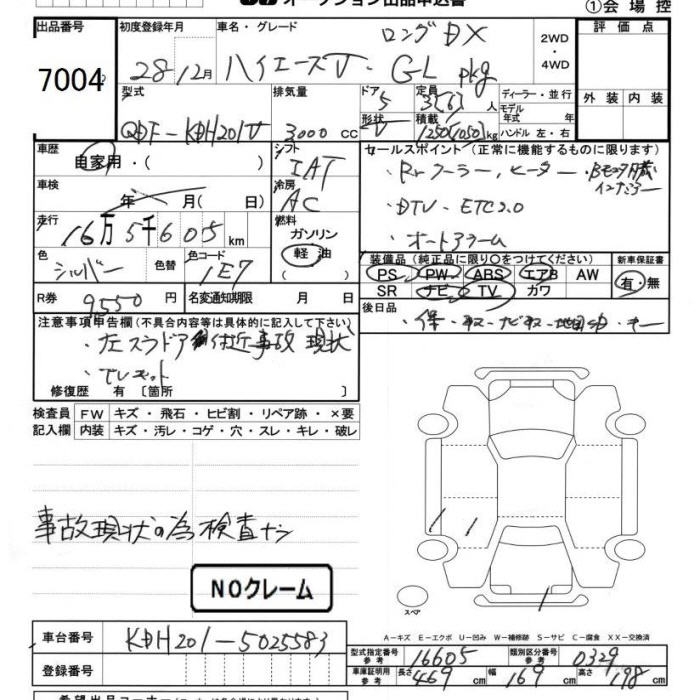 オークション出品申込書
①会場控
出品番号 初度登録年月 車名・グレード 評価点
7004 28 12月 ハイエースV・GL pkg ロングDX 2WD・4WD
外装 内装
型式 排気量 ドア 定員 ディーラー・並行
QDF-KDH201V 3000cc 5 3(6)人 モデル年式 年
形状 積載 ハンドル 左・右
V 1250(1050)kg
車歴 シフト セールスポイント(正常に機能するものに限ります)
自家用・( ) IAT ・Rrクーラー,ヒーター・
車検 冷房 ・DTV・ETC2.0
年 月(日) AC ・オートアラーム
走行 燃料
16万5千605km ガソリン 軽油
装備品(純正品に限り○をつけてください) 新車保証書
色 色替 色コード PS PW ABS エアB AW 有・無
シルバー 1E7 SR ナビ TV カワ
R券 名変通知期限 月 日 後日品
9550円 ・保・取・ナビ取・地図・キー
注意事項申告欄(不具合内容等は具体的に記入して下さい)
・左スラドア付近事故 現状
・TVキット
修復歴 有〔箇所 〕
検査員 FW キズ・飛石・ヒビ割・リペア跡・×要
記入欄 内装 キズ・汚レ・コゲ・穴・スレ・キレ・破レ
事故現状の為検査ナシ
NOクレーム
スペア
A-キズ E-エクボ U-凹み W-補修跡 S-サビ C-腐食 XX-交換済
車台番号 KDH201-5025583
型式指定番号 参考 16605 類別区分番号 参考 0329
登録番号
車庫証明用 参考 長さ 469cm 幅 169cm 高さ 198cm
希望出品コーナー